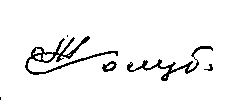 Жолуб.